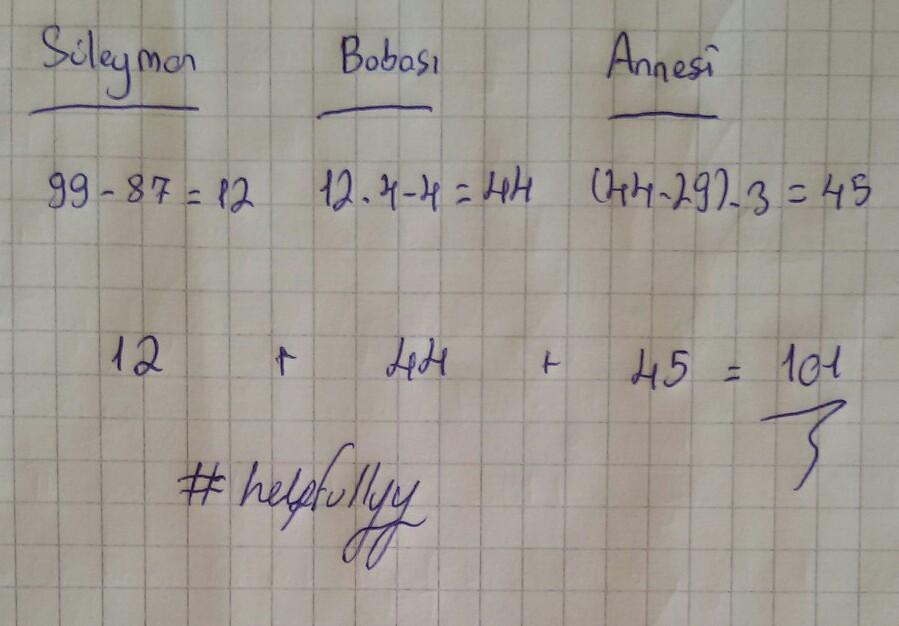 Süleyman Babası Annesi
99-87=12 12.4-4=44 (44-29).3=45
12 + 44 + 45 = 101
#helpfullyy